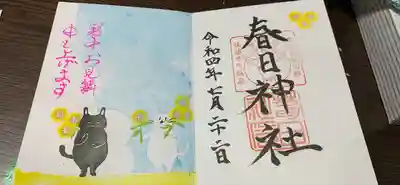 春日神社
令和四年七月二十二日
暑中お見舞
申し上げます